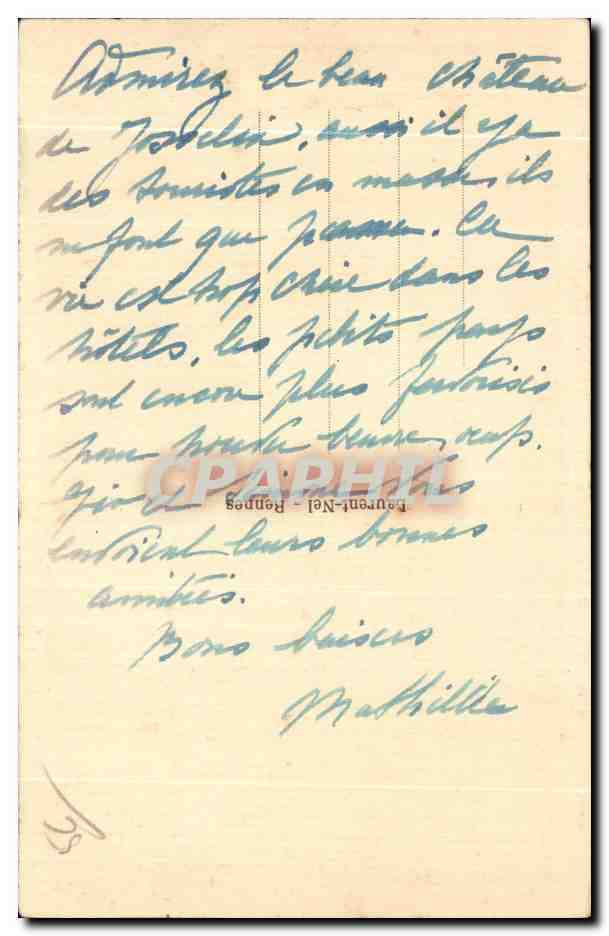 Admirez le beau château
de Josselin, aussi il y a
des touristes en masse, ils
ne font que passer. La
vie est trop chère dans les
hôtels, les petits pays
sont encore plus favorisés
pour beurre, œufs.
et
envoient leurs bonnes
amitiés.
Bons baisers
Mathilde
Laurent-Nel - Rennes
CPAPHIL